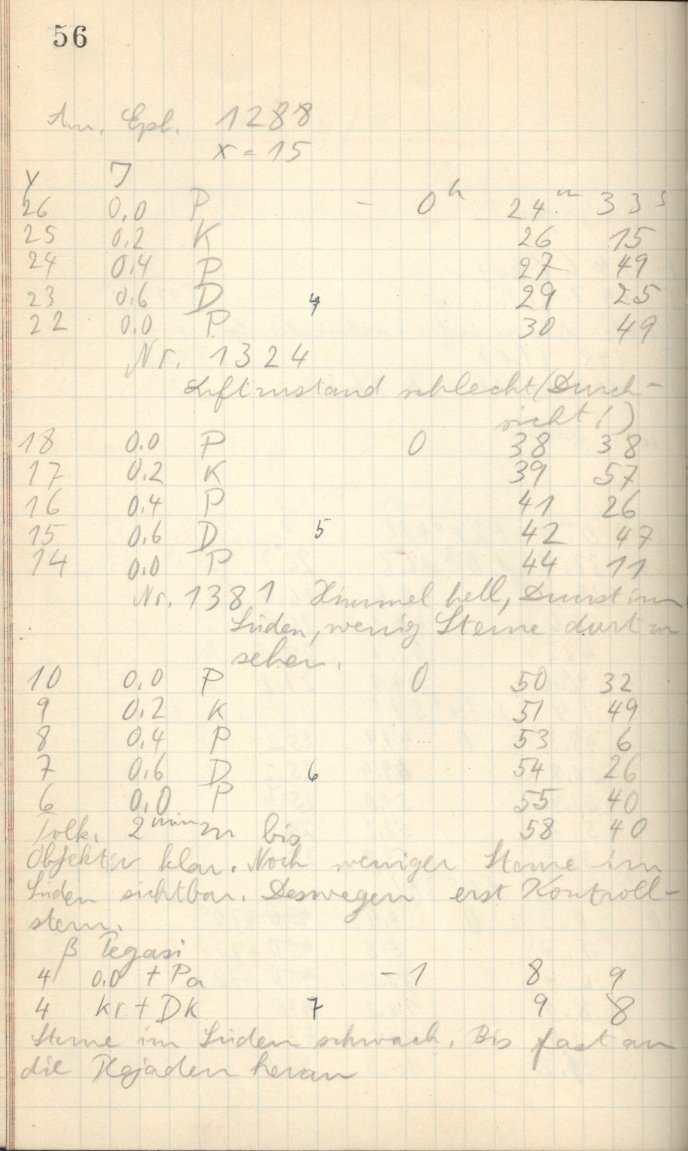 56
Am. Eph. 1288
x = 15
Y J
26 0,0 P - 0h 24m 33s
25 0,2 K 26 15
24 0,4 P 27 49
23 0,6 D 4 29 25
22 0,0 P 30 49
Nr. 1324
Luftzustand schlecht (Durch-
sicht!)
18 0,0 P 0 38 38
17 0,2 K 39 57
16 0,4 P 41 26
15 0,6 D 5 42 47
14 0,0 P 44 11
Nr. 1381 Himmel hell, Dunst im
Süden, wenig Sterne dort zu
sehen.
10 0,0 P 0 50 32
9 0,2 K 51 49
8 0,4 P 53 6
7 0,6 D 6 54 26
6 0,0 P 55 40
2 min bis 58 40
Objektiv klar. Noch weniger Sterne im
Süden sichtbar. Deswegen erst Kontroll-
stern.
β Pegasi
4 0,0 + Pa - 1 8 9
4 Kr + DK 7 9 8
Sterne im Süden schwach. Bis fast an
die Hyjaden heran